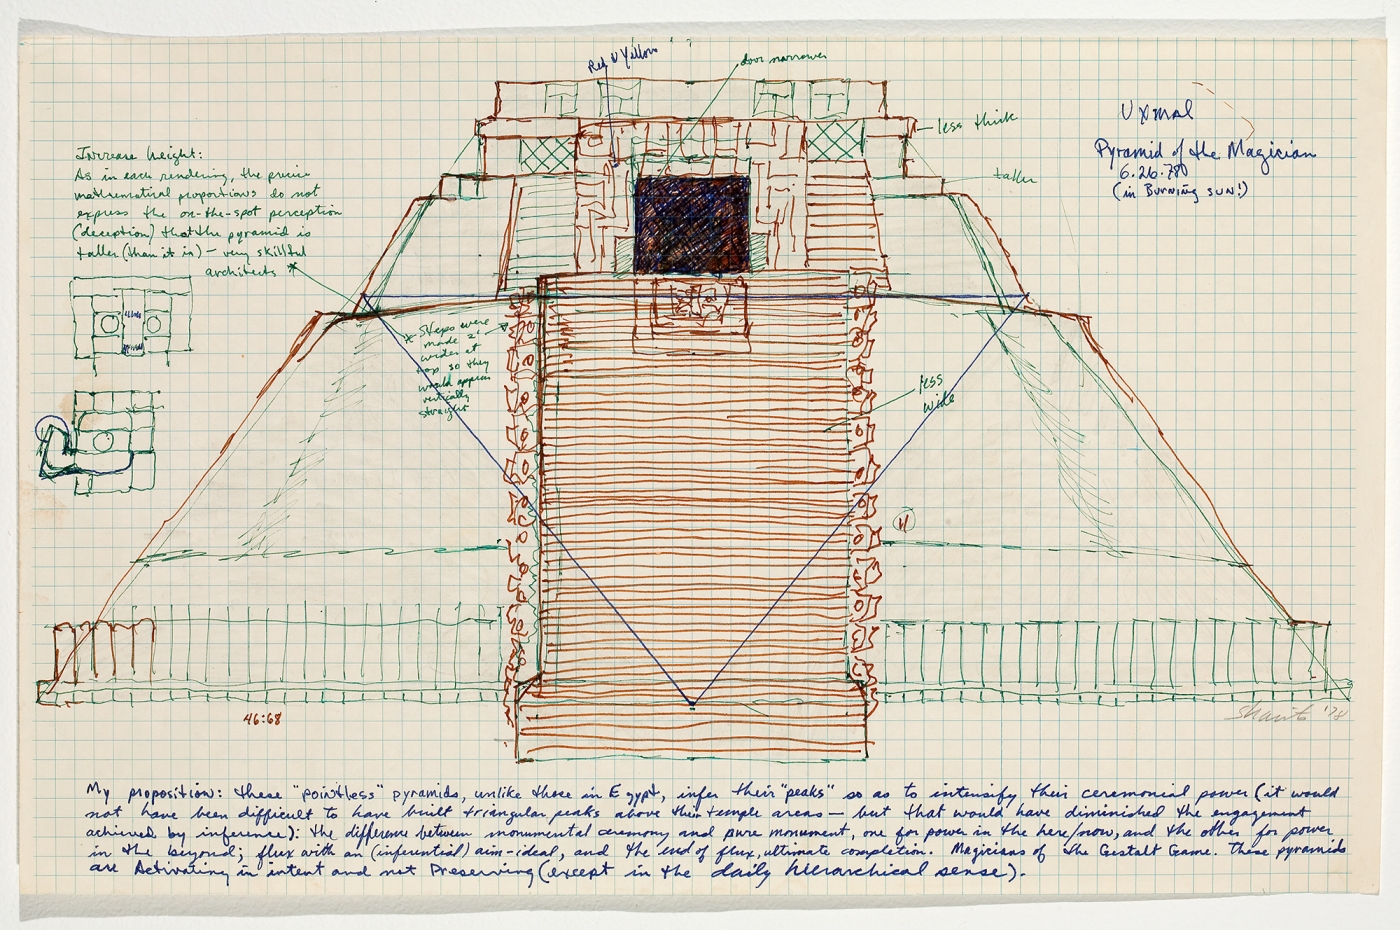 Red & Yellow
door narrower
less thick
Uxmal
Pyramid of the Magician
6.26.78
(in Burning SUN!)
taller
Increase height:
As in each rendering, the precise
mathematical proportions do not
express the on-the-spot perception
(deception) that the pyramid is
taller (than it is) – very skillful
architects *
* Steps were
made 2'
wider at
top so they
would appear
vertically
straight
less
wide
46:68
Sharits '78
My proposition: these "pointless" pyramids, unlike those in Egypt, infer their "peaks" so as to intensify their ceremonial power (it would
not have been difficult to have built triangular peaks above their temple areas – but that would have diminished the engagement
achieved by inference): the difference between monumental ceremony and pure monument, one for power in the here/now, and the other for power
in the beyond; flux with an (inferential) aim-ideal, and the end of flux, ultimate completion. Magicians of the Gestalt Game. These pyramids
are Activating in intent and not Preserving (except in the daily hierarchical sense).